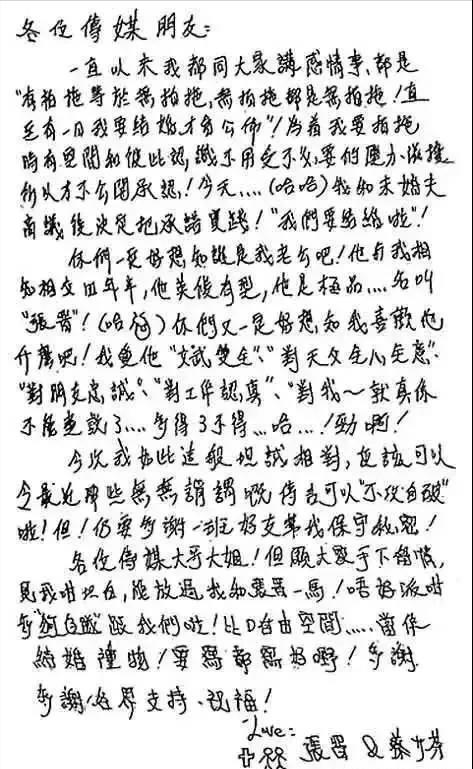 各位傳媒朋友：
一直以來我都同大家講感情事，都是
"有拍拖等於無拍拖，無拍拖都是無拍拖！直
至有一日我要結婚，才會公佈"！為着我要拍拖
時有空間和彼此認識不用受不必要的壓力滋擾
所以才不公開承認！今天....（哈哈）我和未婚夫
商議後決定把承諾實踐！"我們要結婚啦"！
你們一定好想知誰是我老公吧！他與我相
知相交四年半，他英俊有型，他是極品....名叫
"張晉"！（哈哈）你們又一定好想知我喜歡他
什麼吧！我覺他"文武雙全"、"對天父全心全意"、
"對朋友忠誠"、"對工作認真"、"對我～就真係
不能盡錄了....多得3不得...哈...！勁啊！
今次我如此這般坦誠相對，應該可以
令最近那些無無謂謂嘅傳言可以"不攻自破"
啦！但！仍要多謝一班好友幫我保守秘密！
各位傳媒大哥大姐！但願大家手下留情，
見我咁坦白，能放過我和張晉一馬！唔好派咁
多"狗自隊"跟我們啦！比D自由空間.....當係
結婚禮物！要寫都寫好嘢！多謝
多謝！各界支持、祝福！
Love：
張晉 & 蔡少芬